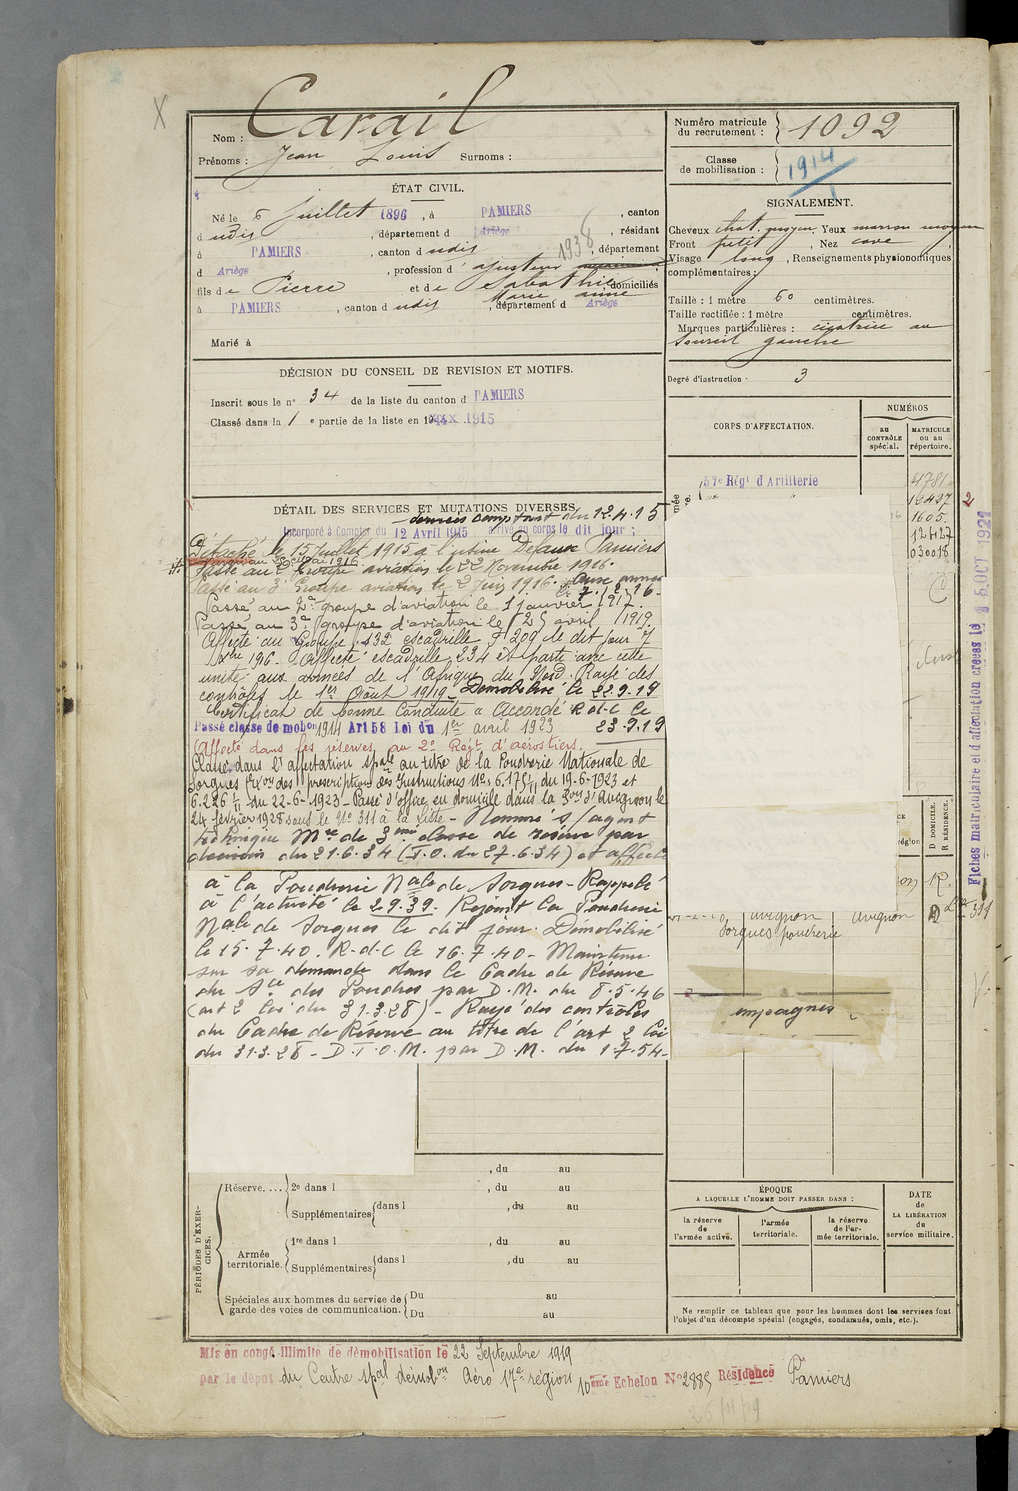 Nom : Carail
Prénoms : Jean Louis Surnoms :
Numéro matricule du recrutement : 1092
Classe de mobilisation : 1914
ÉTAT CIVIL.
Né le 6 juillet 1896, à PAMIERS, canton
d udis, département d Ariège, résidant
à PAMIERS, canton d udis, département
d Ariège, profession d' ajusteur 1938
fils de Pierre et de Sabathié Marie Anne, domiciliés
à PAMIERS, canton d udis, département d Ariège
Marié à
SIGNALEMENT.
Cheveux chat. moyen. Yeux marron moyen
Front petit, Nez cave,
Visage long, Renseignements physionomiques
complémentaires :
Taille : 1 mètre 60 centimètres.
Taille rectifiée : 1 mètre centimètres.
Marques particulières : cicatrice au
sourcil gauche
Degré d'instruction : 3
DÉCISION DU CONSEIL DE REVISION ET MOTIFS.
Inscrit sous le n° 34 de la liste du canton d PAMIERS
Classé dans la 1 e partie de la liste en 1915
CORPS D'AFFECTATION.
NUMÉROS
au CONTRÔLE spécial.
MATRICULE ou au répertoire.
57e Régt d'Artillerie
4781
16497
1605
12427
03008
DÉTAIL DES SERVICES ET MUTATIONS DIVERSES
Incorporé à Compter du 12 Avril 1915 arrivé au corps le dit jour ;
Détaché le 15 juillet 1915 à l'usine Pamiers
Passé au 2e Groupe aviation le 22 Novembre 1916.
Passé au 3e Groupe aviation le
Passé au 2e groupe d'aviation le 1 janvier 1917.
Passé au 3e groupe d'aviation le 25 avril 1919.
Affecté au Groupe 432 escadrille 209 le dit jour
Affecté escadrille 234 et parti avec cette
unité aux armées de l'Afrique du Nord. Rayé des
contrôles le 1er Août 1919 - Démobilisé le 22.9.19
Certificat de bonne Conduite "Accordé" R.d.C le
23.9.19
Passé classe de mobon 1914 Art 58 Loi du 1er avril 1923
(Affecté dans les réserves au 2e Régt d'aérostiers.
Classé dans l'affectation spale au titre de la Poudrerie Nationale de
Sorgues prescription des Instructions Nos 6.175 du 19-6-1923 et
6.226 du 22-6-1923 - Passé d'office en domicile dans la Son d'Avignon le
24 février 1928 sous le No 311 à la liste - Nommé s/agent
technique Mre de 3ème classe de réserve par
décision du 21.6.34 (J.O. du 27.6.34) et affecté
à la Poudrerie Nale de Sorgues - Rappelé
à l'activité le 2.9.39. Rejoint la Poudrerie
Nale de Sorgues le dit jour. Démobilisé
le 15.7.40. R.d.C le 16.7.40 - Maintenu
sur sa demande dans le Cadre de Réserve
du Sce des Poudres par D.M. du 8.5.46
(art 2 loi du 31.3.28) - Rayé des contrôles
du Cadre de Réserve au titre de l'art 2 loi
du 31.3.28 - D.T.O.M. par D.M. du 1.7.54-
D. DOMICILE.
R. RÉSIDENCE.
R.
avignon avignon D
Sorgues poudrerie
311
Fiches matriculaire et d'affectation créées le 15 OCT 1921
PÉRIODES D'EXERCICES.
, du au
Réserve.... 2e dans l , du au
Supplémentaires dans l , du au
Armée territoriale. 1re dans l , du au
Supplémentaires dans l , du au
Spéciales aux hommes du service de garde des voies de communication. Du au
Du au
ÉPOQUE
A LAQUELLE L'HOMME DOIT PASSER DANS :
la réserve de l'armée active.
l'armée territoriale.
la réserve de l'armée territoriale.
DATE de LA LIBÉRATION du service militaire.
Ne remplir ce tableau que pour les hommes dont les services font
l'objet d'un décompte spécial (engagés, condamnés, omis, etc.).
Mis en congé illimité de démobilisation le 22 Septembre 1919
par le dépôt du Centre spal démobon Aéro 17e région 10ème Echelon No 2885 Résidence Pamiers